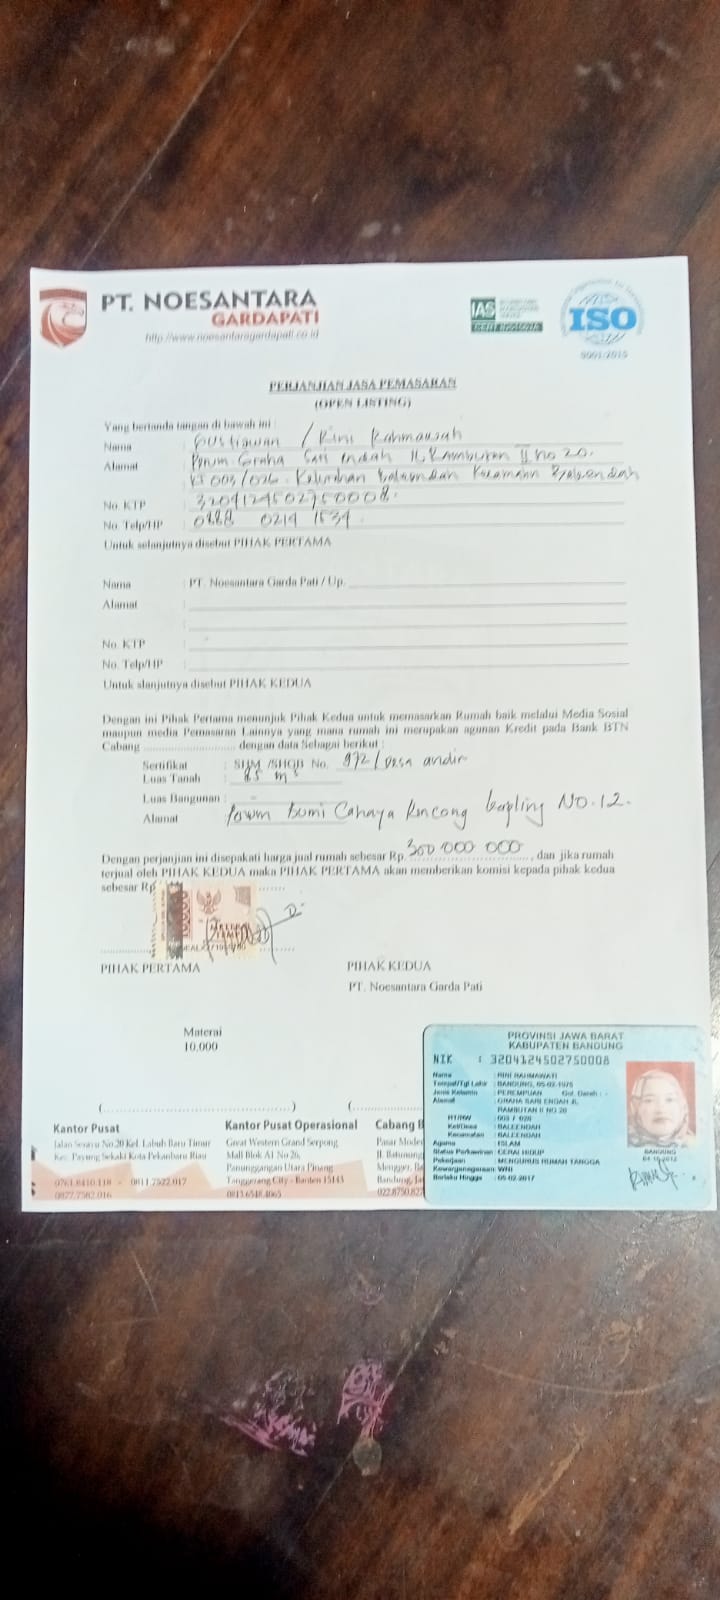 PT. NOESANTARA
GARDAPATI
http://www.noesantaragardapati.co.id
IAS
ISO
9001:2015
PERJANJIAN JASA PEMASARAN
(OPEN LISTING)
Yang bertanda tangan di bawah ini :
Nama : Gustiawan / Rini Rahmawati
Alamat : Perum Graha Sari Endah Jl. Rambutan II no 20.
RT 003/026. Kelurahan Baleendah Kecamatan Baleendah
No. KTP : 3204124502750008.
No. Telp/HP : 0888 0214 1534
Untuk selanjutnya disebut PIHAK PERTAMA
Nama : PT. Noesantara Garda Pati / Up.
Alamat :
No. KTP :
No. Telp/HP :
Untuk slanjutnya disebut PIHAK KEDUA
Dengan ini Pihak Pertama menunjuk Pihak Kedua untuk memasarkan Rumah baik melalui Media Sosial
maupun media Pemasaran Lainnya yang mana rumah ini merupakan agunan Kredit pada Bank BTN
Cabang ........................ dengan data Sebagai berikut :
Sertifikat : SHM /SHGB No. 972 / Desa andir
Luas Tanah : 85 m²
Luas Bangunan : -
Alamat : Perum Bumi Cahaya Kapling No. 12.
Dengan perjanjian ini disepakati harga jual rumah sebesar Rp. 300 000 000, dan jika rumah
terjual oleh PIHAK KEDUA maka PIHAK PERTAMA akan memberikan komisi kepada pihak kedua
sebesar Rp
10000
PIHAK PERTAMA
PIHAK KEDUA
PT. Noesantara Garda Pati
Materai
10.000
(........................................)
(........
Kantor Pusat
Kec. Payung Sekaki Kota Pekanbaru Riau
0761.8410.118 - 0811.7522.017
0827.7582.016
Kantor Pusat Operasional
Great Western Grand Serpong
Mall Blok A1 No 26,
Panunggangan Utara Pinang
Tanggerang City - Banten 15143
0813.6548.4065
Cabang B
Pasar Moder
Jl. Batunung
Mengger, Ba
Bandung, Ja
022.8750.82
PROVINSI JAWA BARAT
KABUPATEN BANDUNG
NIK : 3204124502750008
Nama : RINI RAHMAWATI
Tempat/Tgl Lahir : BANDUNG, 05-02-1975
Jenis Kelamin : PEREMPUAN Gol. Darah : -
Alamat : GRAHA SARI ENDAH JL
RAMBUTAN II NO 20
RT/RW : 003 / 026
Kel/Desa : BALEENDAH
Kecamatan : BALEENDAH
Agama : ISLAM
Status Perkawinan : CERAI HIDUP
Pekerjaan : MENGURUS RUMAH TANGGA
Kewarganegaraan : WNI
Berlaku Hingga : 05-02-2017
BANDUNG
04-10-2012